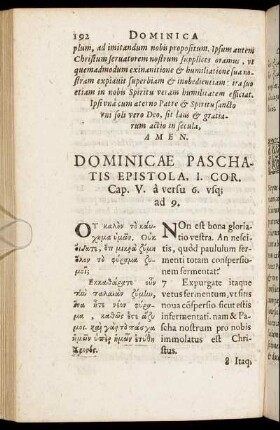 192 DOMINICA
plum, ad imitandum nobis propositum. Ipsum autem
Christum servatorem nostrum supplices oramus, ut
quemadmodum exinanitione & humiliatione sua no-
stram expiavit superbiam & inobedientiam: ita suo
etiam in nobis Spiritu veram humilitatem efficiat.
Ipsi unà cum æterno Patre & Spiritu sancto
uni soli vero Deo, sit laus & gratia-
rum actio in secula,
AMEN.
DOMINICAE PASCHA-
TIS EPISTOLA. I. COR.
Cap. V. à versu 6. vsq;
ad 9.
Οὐ καλὸν τὸ καύ-
χημα ὑμῶν. Οὐκ
οἴδατε, ὅτι μικρὰ ζύμη
ὅλον τὸ φύραμα ζυ-
μοῖ;
Ἐκκαθάρατε οὖν
τὴν παλαιὰν ζύμην,
ἵνα ἦτε νέον φύρα-
μα, καθώς ἐστε ἄζυ-
μοι. καὶ γὰρ τὸ πάσχα
ἡμῶν ὑπὲρ ἡμῶν ἐτύθη
Χριστός.
NOn est bona gloria-
tio vestra. An nesci-
tis, quod paululum fer-
menti totam consperio-
nem fermentat?
7 Expurgate itaque
vetus fermentum, vt sitis
noua cōspersio sicut estis
infermentati. nam & Pa-
scha nostrum pro nobis
immolatus est Chri-
stus.
8 Itaq.